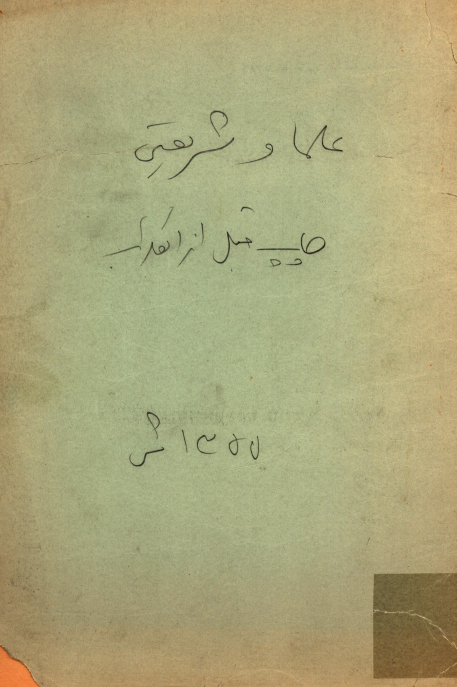 علما و شریعتی
چاپ قبل از انقلاب
۱۳۵۵ ش